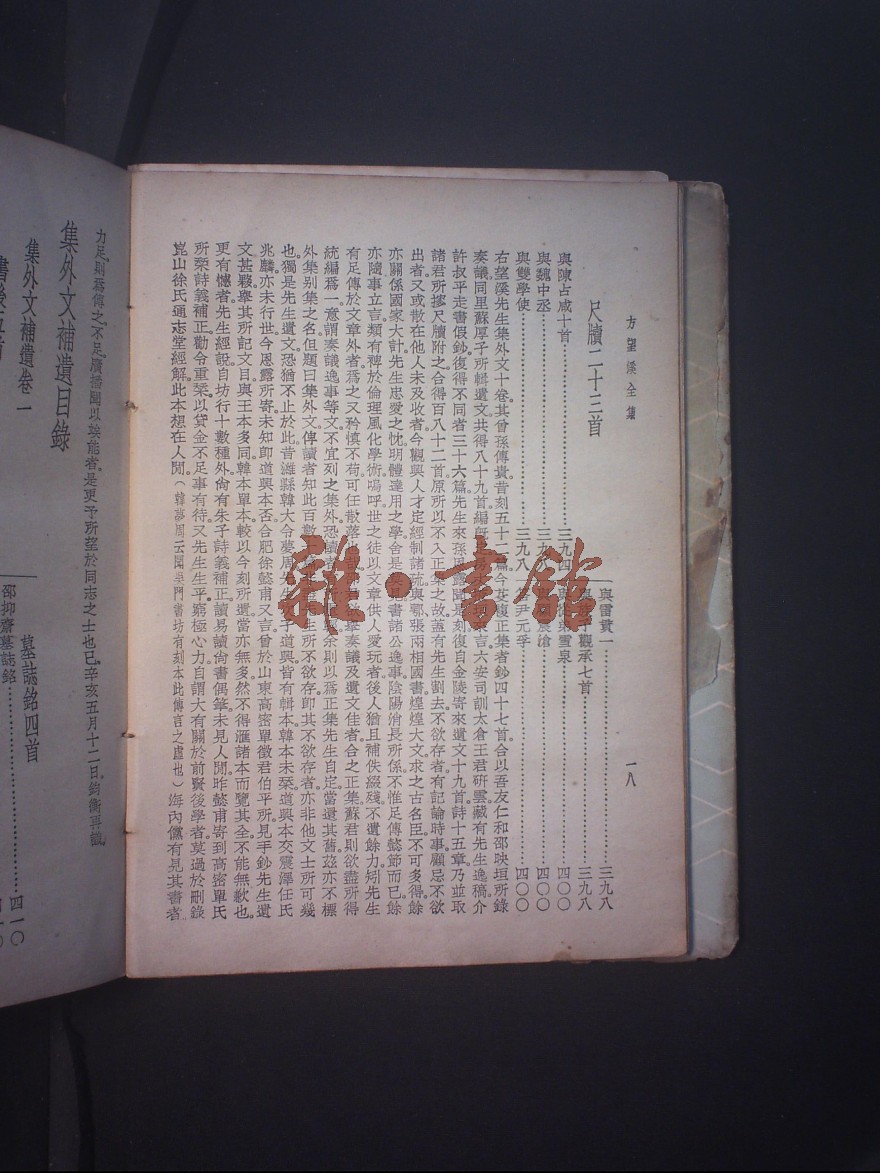 方望溪全集
一八
尺牘二十三首
與陳占咸十首 三九四
與魏中丞 三九
與雙學使 三九八
與雷貫一 三九八
觀承七首 三九八
雪泉 四〇〇
震滄 四〇〇
尹元孚 四〇〇
右望溪先生集外文十卷其曾孫傳貴昔刻五十二篇今
正集者鈔四十七首。合以吾友仁和邵映垣所錄
奏議同里蘇厚子所輯遺文共得八十九首編
言六安司訓太倉王君硏雲藏有先生逸稿介
許叔平走書假鈔復得不同者三十六篇先生來孫恩露
是刻復自金陵寄來遺文十九首詩十五章乃並取
諸君所摭尺牘附之合得百八十二首原所以不入正集之故蓋有先生剟去不欲存者有記論時事顧忌不欲
出者又或散在他人未及收者今觀與人才定經制諸疏與鄂張兩相國書煌煌大文求之古名臣不可多得。餘
亦關係國家大計。先生忠愛之忱明體達用之學舍是
書諸公逸事陰陽消長所係不惟足傳懿節而已餘
亦隨事立言。類有裨於倫理風化學術嗚呼世之徒以文章供人愛玩者後人猶且補佚綴殘不遺餘力。矧先生
有足傳於文章外者。爲之又矜愼不苟可任散落也
奏議及遺文佳者合之正集蘇君則欲盡所得
統編爲一意謂奏議逸事等文不宜列之集外恐讀者
余則以爲正集先生自定當還其舊茲亦不標
外集別集之名但題曰集外文俾讀者知此百數十
生所不欲存卽其不欲存者亦非他文士所可幾
也。獨是先生遺文恐猶不止於此昔濰縣韓大令夢周
子道興皆有輯本韓本未栞道興本交震澤任氏
兆麟亦未行世今恩露所寄未知卽道興本否合肥徐懿甫又言曾於山東高密單徵君伯平所見手鈔先生遺
文甚夥。舉其所記文目與王本多同韓本單本較以今刻所遺當亦無多然不得滙諸本而覽其全不能無歉也。
更有憾者先生經說自坊行十數種外尙有朱子詩義補正讀易讀尙書偶筆未見人閒。昨懿甫寄到高密單氏
所栞詩義補正勸令重栞以貸金不足事有待又先生生平窮極心力自謂大有關於前賢後學者莫過於刪錄
崑山徐氏通志堂經解此本想在人閒。（韓夢周云聞吳門書坊有刻本此傳言之虛也）海內儻有見其書者
力足則爲傳之不足廣播聞以竢能者。是更予所望於同志之士也已辛亥五月十二日鈞衡再識。
集外文補遺目錄
集外文補遺卷一
墓誌銘四首
邵抑齋墓誌銘 四一〇
雜·書館